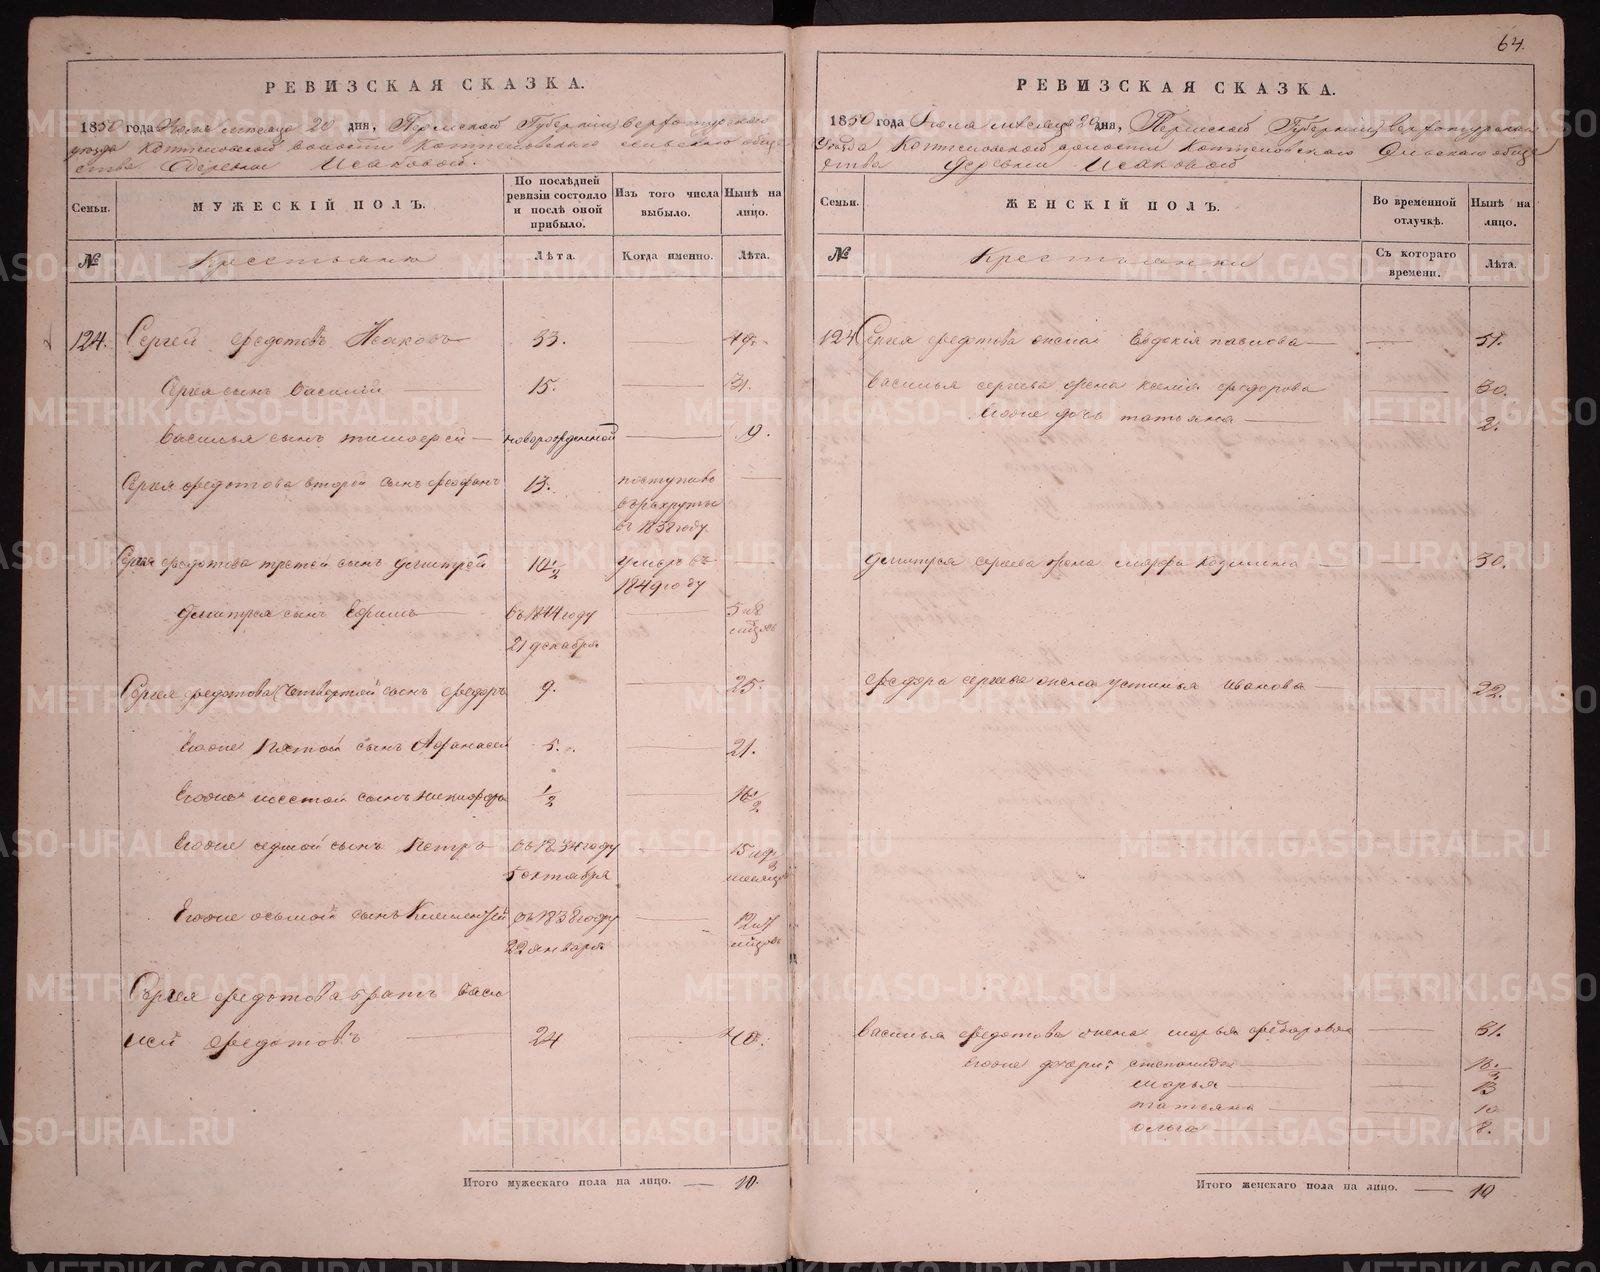 РЕВИЗСКАЯ СКАЗКА.
1850 года Июля месяца 20 дня, Пермской Губернии Верхотурскаго
уезда Коптеловской волости Коптеловскаго сельскаго обще
ства Деревни Исаковой.
Семьи.
МУЖЕСКІЙ ПОЛЪ.
По послѣдней ревизіи состояло и послѣ оной прибыло.
Изъ того числа выбыло.
Нынѣ на лицо.
№
Крестьяне
Лѣта.
Когда именно.
Лѣта.
124. Сергей Федотовъ Исаковъ 33. 49.
Сергея сынъ Василій 15. 31.
Василья сынъ Тимофей новорожденной 9.
Сергея Федотова второй сынъ Феофанъ 13. поступивъ
въ рекруты
въ 1838 году
Сергея Федотова третей сынъ Дмитрей 10 1/2 умеръ въ
1849 году
Дмитрея сынъ Ефимъ въ 1844 году 5 и 8
21 декабря месяц
Сергея Федотова четвертой сынъ Федоръ 9. 25.
Егоже пятой сынъ Афанасей 5. 21.
Егоже шестой сынъ Никифоръ 1/2 16 1/2
Егоже седмой сынъ Петръ въ 1834 году 15 и 9
5 октября месяц
Егоже осьмой сынъ Климентей въ 1838 году 12 и 7
22 января месяц
Сергея Федотова братъ Васи
лей Федотовъ 24 40.
Итого мужескаго пола на лицо. 10.
64.
РЕВИЗСКАЯ СКАЗКА.
1850 года Июля месяца 20 дня, Пермской Губернии Верхотурскаго
уезда Коптеловской волости Коптеловскаго Сельскаго обще
ства Деревни Исаковой
Семьи.
ЖЕНСКІЙ ПОЛЪ.
Во временной отлучкѣ.
Нынѣ на лицо.
№
Крестьянки
Съ котораго времени.
Лѣта.
124 Сергея Федотова жена Евдокія Павлова 51.
Василья Сергеева жена Ксенія Федорова 30.
Егоже дочь Татьяна 2.
Дмитрея Сергеева жена Марфа Козмина 30.
Федора Сергеева жена Устинья Иванова 22.
Василья Федотова жена Марья Федорова 31.
Егоже дочери: Степанида
Марья 13
Татьяна 10
Ольга 8.
Итого женскаго пола на лицо. 10
METRIKI.GASO-URAL.RU